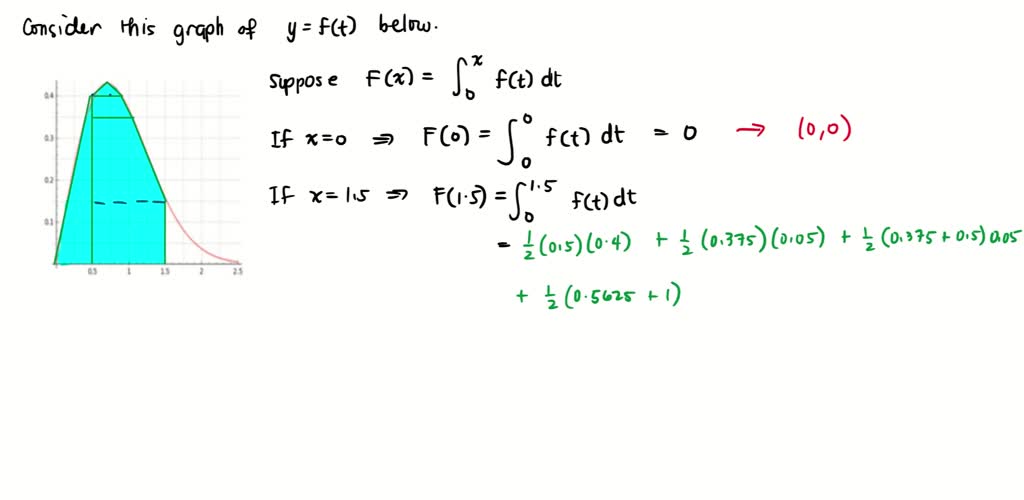 Consider this graph of y = f(t) below.
Suppose F(x) = ∫₀ˣ f(t) dt
If x=0 ⇒ F(0) = ∫₀⁰ f(t) dt = 0 → (0,0)
If x=1.5 ⇒ F(1.5) = ∫₀^1.5 f(t) dt
= 1/2 (0.5)(0.4) + 1/2 (0.375)(0.05) + 1/2 (0.375 + 0.5) 0.05
+ 1/2 (0.5625 + 1)
0.4
0.3
0.2
0.1
0.5 1 1.5 2 2.5